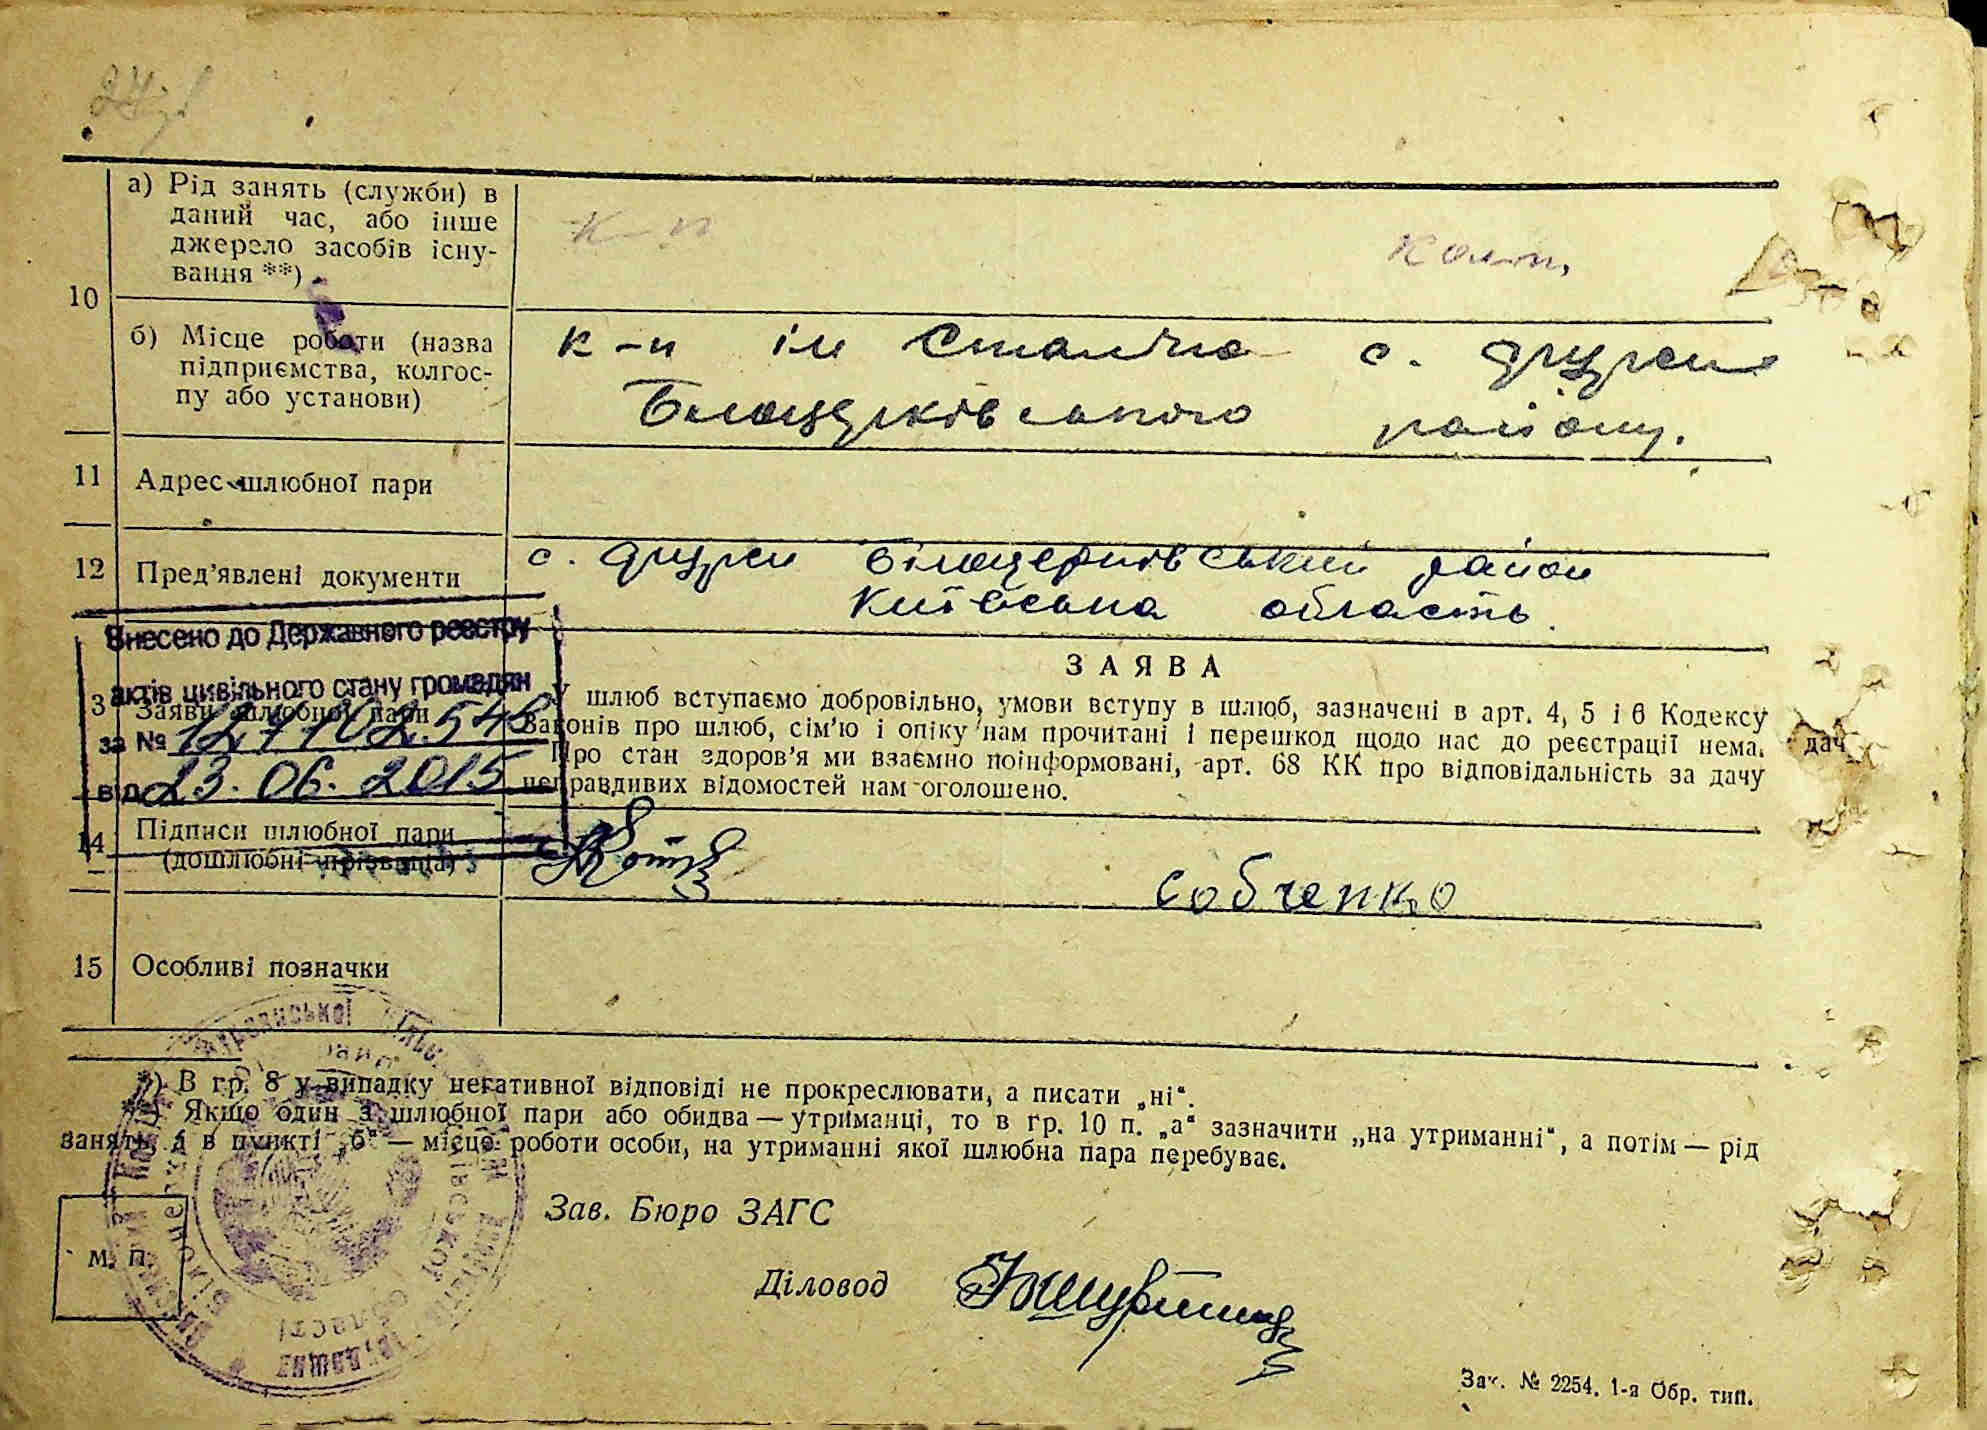 10
а) Рід занять (служби) в
даний час, або інше
джерело засобів існу-
вання **)
к-п
колг.
б) Місце роботи (назва
підприємства, колгос-
пу або установи)
к-п ім Сталіна с.
Білоцерківського району.
11 Адрес шлюбної пари
12 Пред'явлені документи
с. Білоцерківський район
Київська область.
Внесено до Державного реєстру
актів цивільного стану громадян
за №
від 23.06.2015
3 Заяви шлюбної пари
ЗАЯВА
У шлюб вступаємо добровільно, умови вступу в шлюб, зазначені в арт. 4, 5 і 6 Кодексу
Законів про шлюб, сім'ю і опіку нам прочитані і перешкод щодо нас до реєстрації нема.
Про стан здоров'я ми взаємно поінформовані, арт. 68 КК про відповідальність за дачу
неправдивих відомостей нам оголошено.
дач
14 Підписи шлюбної пари
(дошлюбні прізвища)
Собченко
15 Особливі позначки
*) В гр. 8 у випадку негативної відповіді не прокреслювати, а писати „ні“.
**) Якщо один з шлюбної пари або обидва — утриманці, то в гр. 10 п. „а“ зазначити „на утриманні“, а потім — рід
занять, а в пункті „б“ — місце роботи особи, на утриманні якої шлюбна пара перебуває.
Зав. Бюро ЗАГС
М. П.
Діловод
області
Зак. № 2254. 1-я Обр. тип.